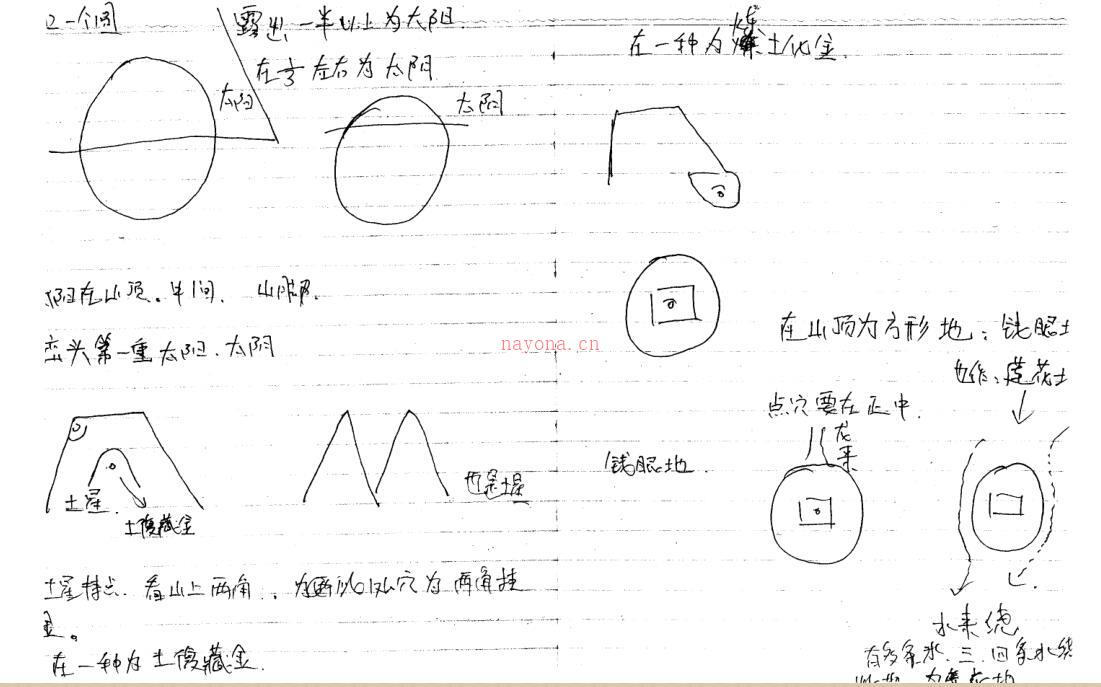 是一个圆
露出一半以上为太阳.
在⅓左右为太阴
太阳
太阴
阳在山顶。半间、山脚.
峦头第一重太阳、太阴
土星.
土腹藏金
也是土星
土星特点. 看山上两角.
穴为两角挂
金。
在一种为土腹藏金.
在一种为 土化金.
nayona.cn
在山顶为方形地: 钱眼土
也作: 莲花土
点穴要在正中.
钱眼地.
龙来
水来绕
有多条水. 三. 四条水绕